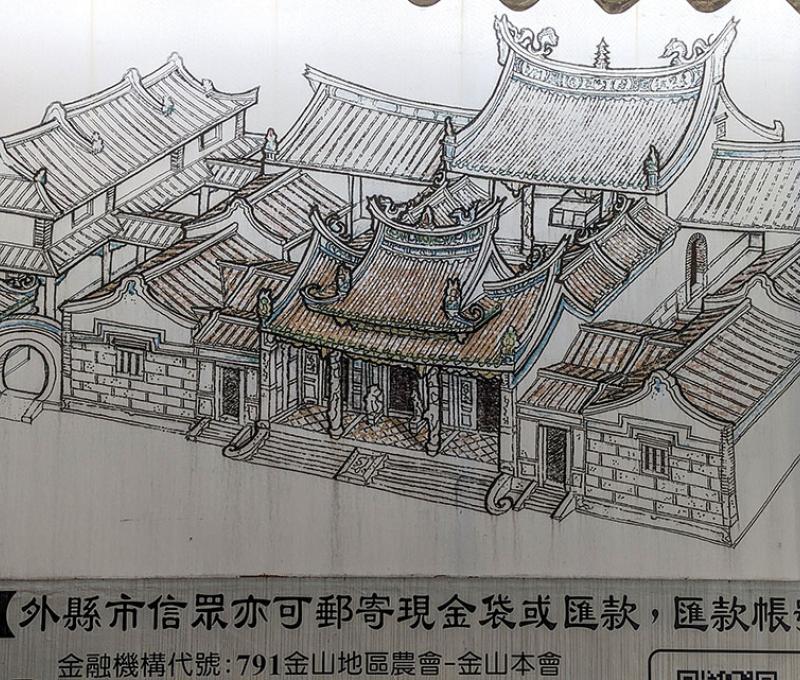 外縣市信眾亦可郵寄現金袋或匯款，匯款帳
金融機構代號：791金山地區農會-金山本會